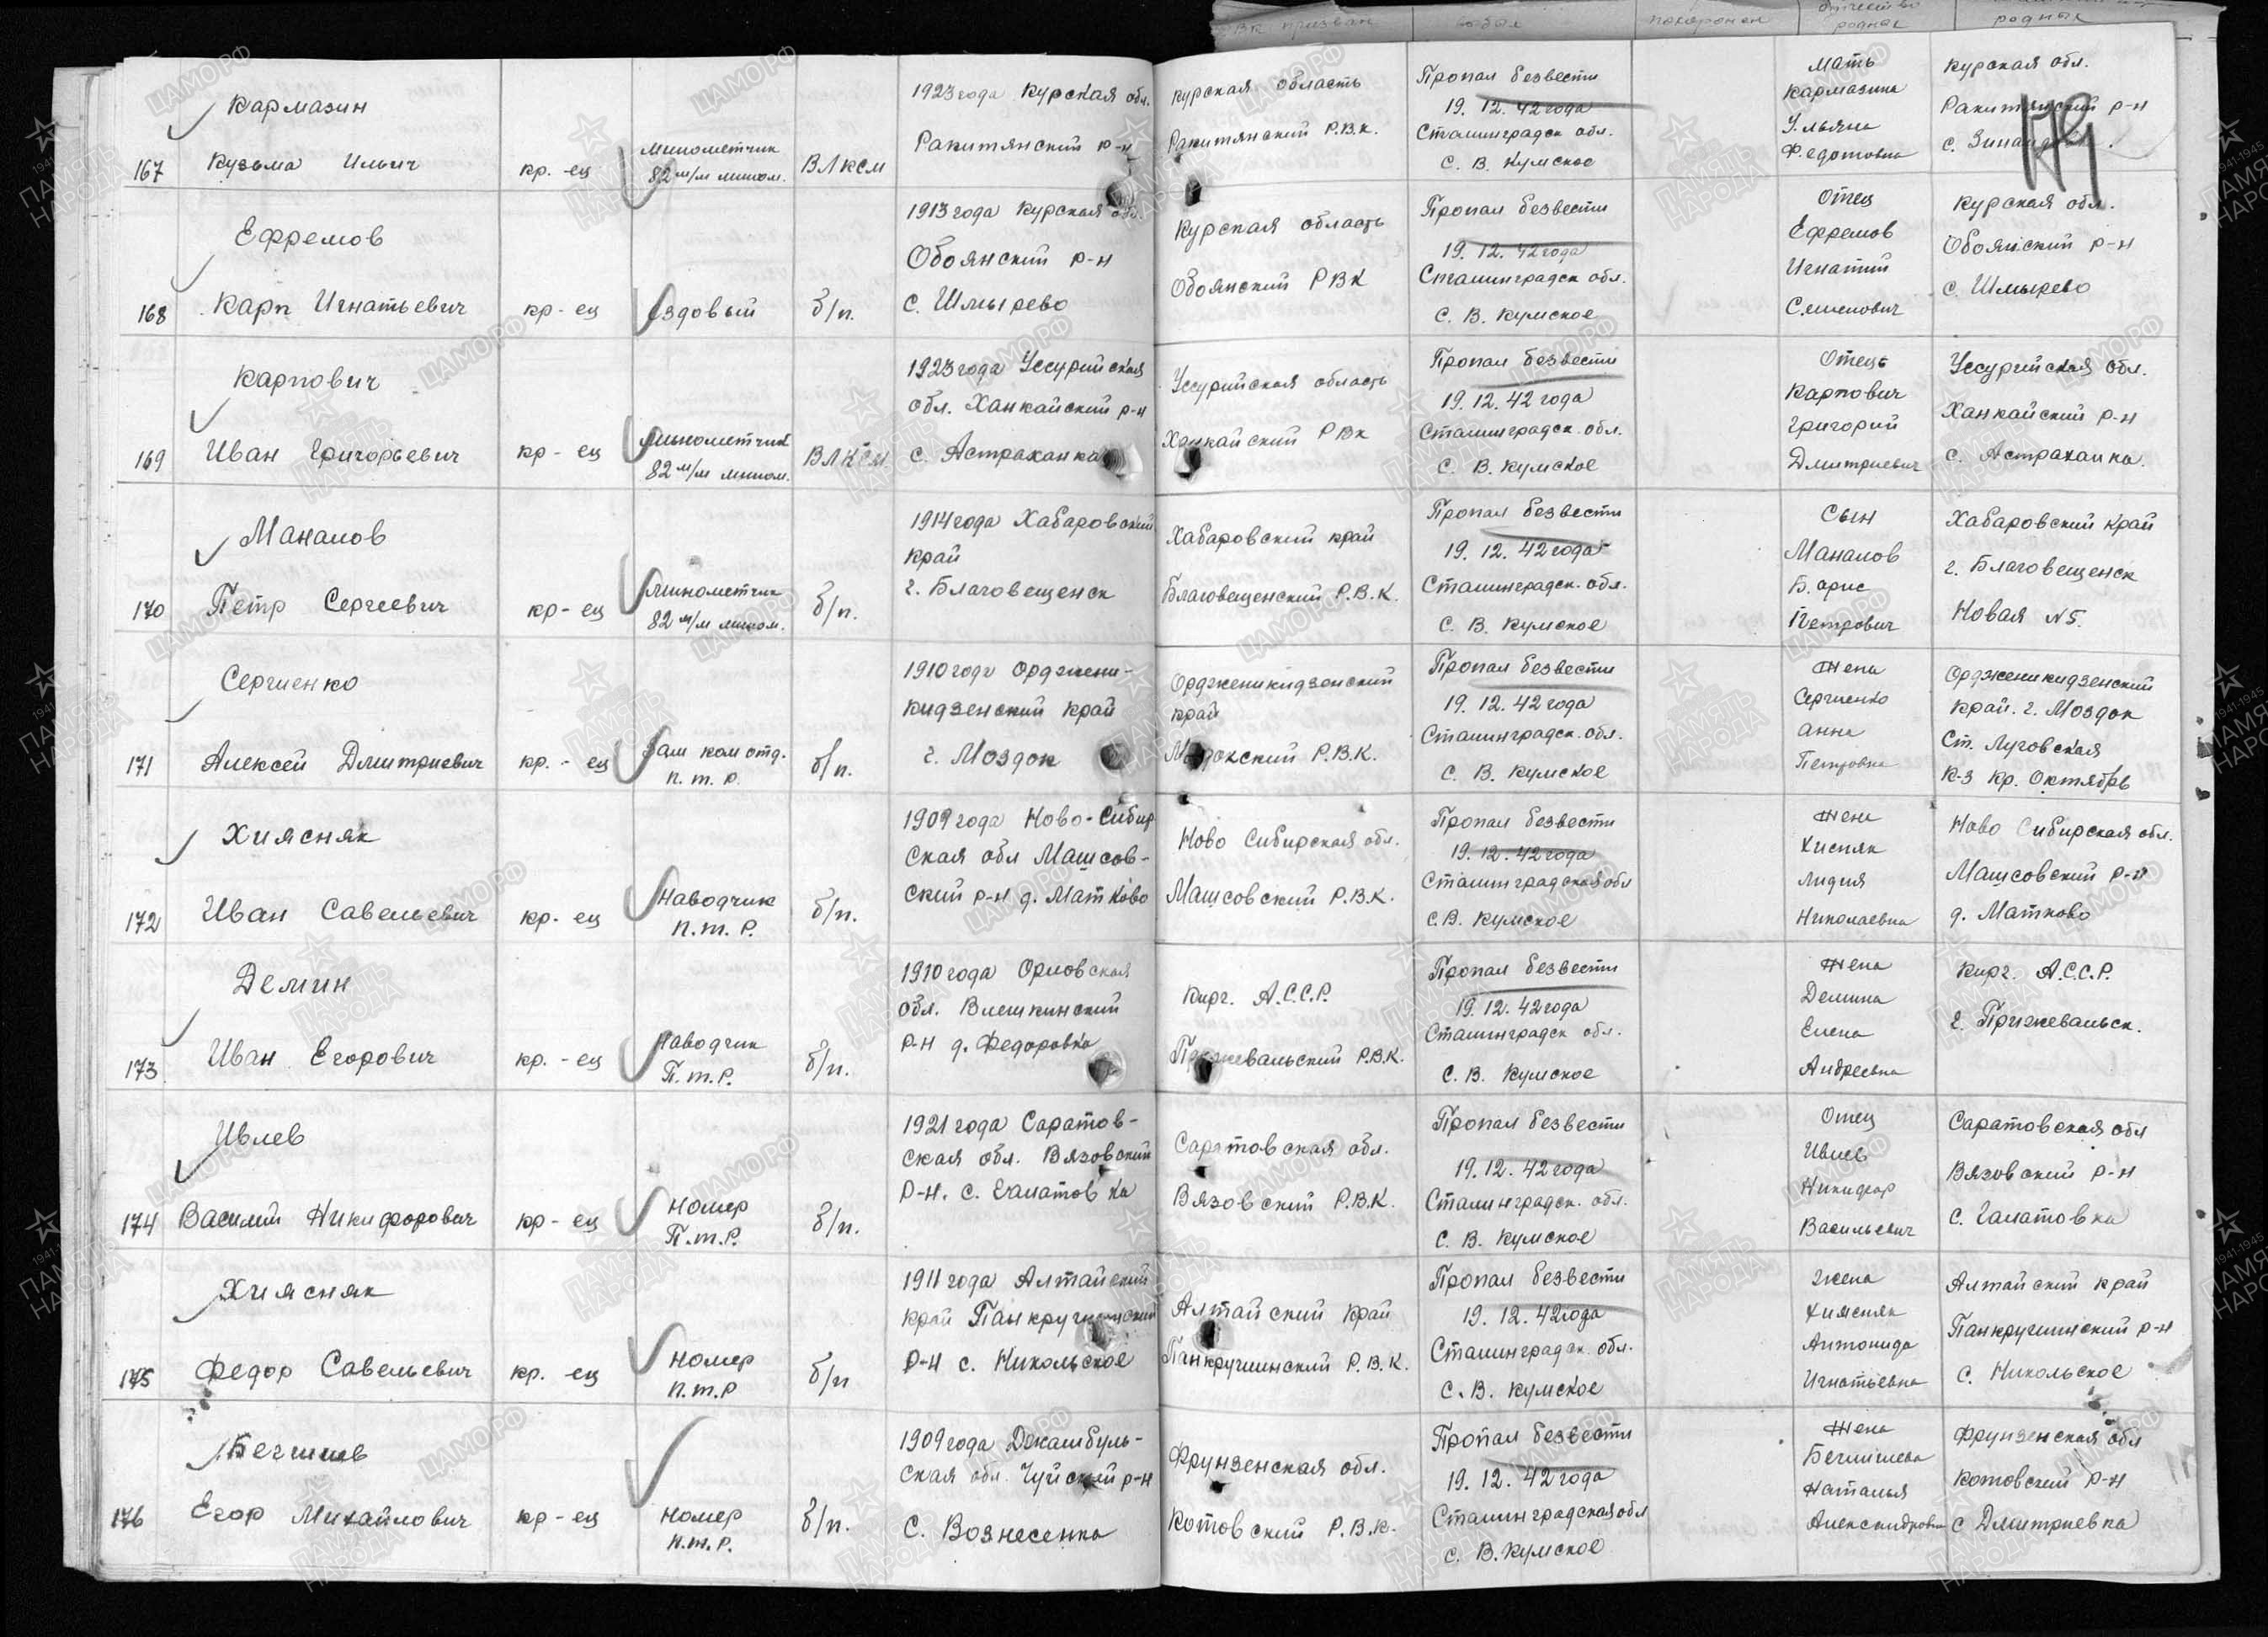 РВК призван
выбыл
похоронен
отчество
родных
родных
179
167
Кармазин
Кузьма Ильич
кр.-ец
минометчик
82 м/м мином.
ВЛКСМ
1923 года Курская обл.
Ракитянский р-н
Курская область
Ракитянский Р.В.К.
Пропал безвести
19.12.42 года
Сталинградск обл.
С. В. Кумское
Мать
Кармазина
Ульяна
Федотовна
Курская обл.
Ракитянский р-н
168
Ефремов
Карп Игнатьевич
кр-ец
Ездовый
б/п.
1913 года Курская обл.
Обоянский р-н
с. Шмырево
Курская область
Обоянский РВК
Пропал безвести
19.12.42 года
Сталинградск обл.
С. В. Кумское
Отец
Ефремов
Игнатий
Семенович
Курская обл.
Обоянский р-н
с. Шмырево
169
Карпович
Иван Григорьевич
кр-ец
минометчик
82 м/м мином.
ВЛКСМ
1923 года Уссурийская
обл. Ханкайский р-н
с. Астраханка
Уссурийская область
Ханкайский РВК
Пропал безвести
19.12.42 года
Сталинградск. обл.
С. В. Кумское
Отець
Карпович
Григорий
Дмитриевич
Уссурийская обл.
Ханкайский р-н
с. Астраханка.
170
Маналов
Петр Сергеевич
кр-ец
минометчик
82 м/м мином.
б/п.
1914 года Хабаровский
край
г. Благовещенск
Хабаровский край
Благовещенский Р.В.К.
Пропал безвести
19.12.42 года
Сталинградск. обл.
С. В. Кумское
Сын
Маналов
Борис
Петрович
Хабаровский край
г. Благовещенск
Новая №5.
171
Сергиенко
Алексей Дмитриевич
кр.-ец
Зам ком отд.
п.т.р.
б/п.
1910 года Орджени-
кидзенский край
г. Моздок
Ордженикидзенский
край
Моздокский Р.В.К.
Пропал безвести
19.12.42 года
Сталинградск. обл.
С. В. Кумское
Жена
Сергиенко
Анна
Петровна
Ордженикидзенский
край. г. Моздок
Ст. Луговская
К-з Кр. Октябрь
172
Хиясняк
Иван Савельевич
кр-ец
Наводчик
п.т.р.
б/п.
1909 года Ново-Сибир
ская обл Машсов-
ский р-н д. Матково
Ново Сибирская обл.
Машсовский Р.В.К.
Пропал безвести
19.12.42 года
Сталинградская обл
С.В. Кумское
Жена
Хисняк
Лидия
Николаевна
Ново Сибирская обл.
Машсовский р-н
д. Матково
173
Демин
Иван Егорович
кр.-ец
Наводчик
П.т.р.
б/п.
1910 года Орловская
обл. Влешкинский
р-н д. Федоровка
Кирг. А.С.С.Р.
Пржевальский Р.В.К.
Пропал безвести
19.12.42 года
Сталинградск обл.
С. В. Кумское
Жена
Демина
Елена
Андреевна
Кирг. А.С.С.Р.
г. Пржевальск.
174
Ивлев
Василий Никифорович
кр-ец
Номер
П.т.р.
б/п.
1921 года Саратов-
ская обл. Вязовский
р-н. с. Ечалатовка
Саратовская обл.
Вязовский Р.В.К.
Пропал безвести
19.12.42 года
Сталинградск. обл.
С. В. Кумское
Отец
Ивлев
Никифор
Васильевич
Саратовская обл
Вязовский р-н
с. Галатовка
175
Хиясняк
Федор Савельевич
кр.-ец
Номер
п.т.р
б/п
1911 года Алтайский
край Панкрушинский
р-н с. Никольское
Алтайский край
Панкрушинский Р.В.К.
Пропал безвести
19.12.42 года
Сталинградск. обл.
С. В. Кумское
жена
Хиясняк
Антонида
Игнатьевна
Алтайский край
Панкрушинский р-н
с. Никольское
176
Бегишев
Егор Михайлович
кр-ец
Номер
п.т.р.
б/п.
1909 года Джамбуль-
ская обл. Чуйский р-н
С. Вознесенка
Фрунзенская обл.
Котовский Р.В.К.
Пропал безвести
19.12.42 года
Сталинградская обл
С. В. Кумское
Жена
Наталья
Александровна
Фрунзенская обл
Котовский р-н
с Дмитриевка
ЦАМО РФ
ПАМЯТЬ
НАРОДА
1941-1945